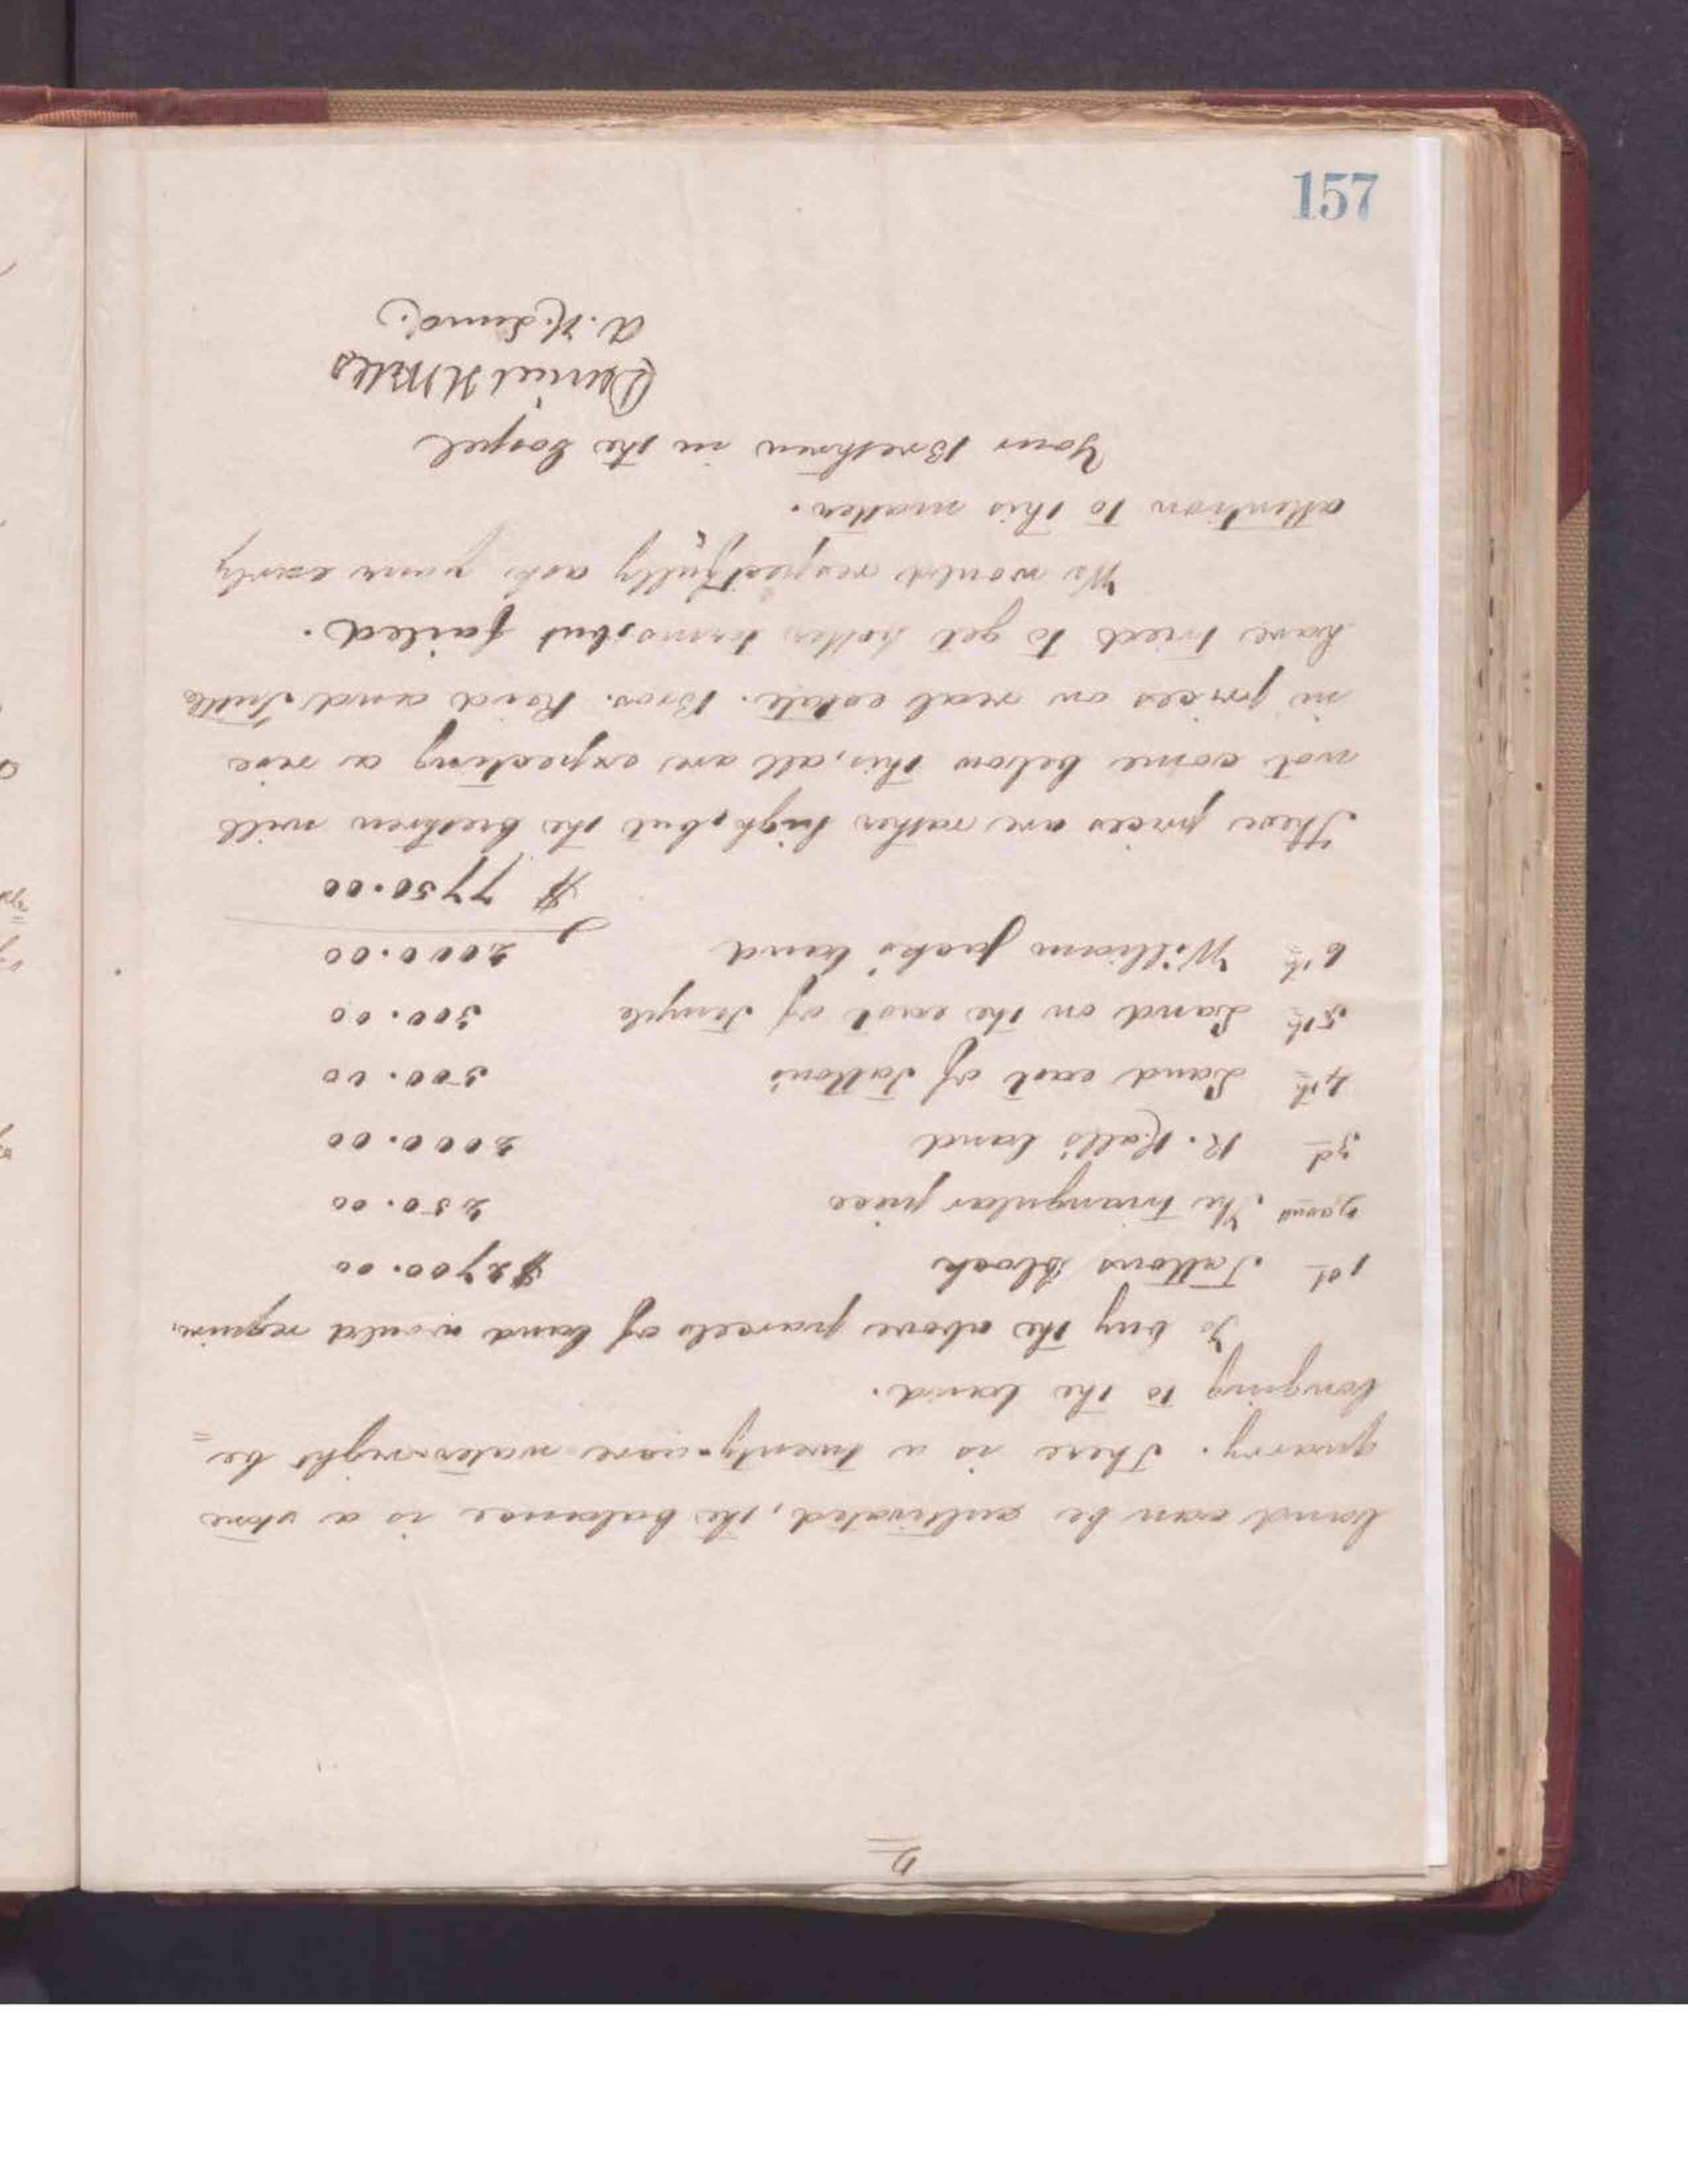 157
2
land can be cultivated, the balance is a stone
quarry. There is a twenty-acre water-right be=
longing to the land.
To buy the above parcels of land would require
1st Tattons Block $2700.00
2cond The triangular piece 250.00
3d R. Hall's land 2000.00
4th Land east of Tatton's 500.00
5th Land on the east of Temple 300.00
6th William Jack's land 2000.00
$ 7750.00
These prices are rather high, but the brethren will
not come below this, all are expecting a rise
in prices on real estate. Bros. Reid and Tuttle
have tried to get better terms, but failed.
We would respectfully ask your early
attention to this matter.
Your Brethren in the Gospel
Daniel H Wells
A. H. Lund.